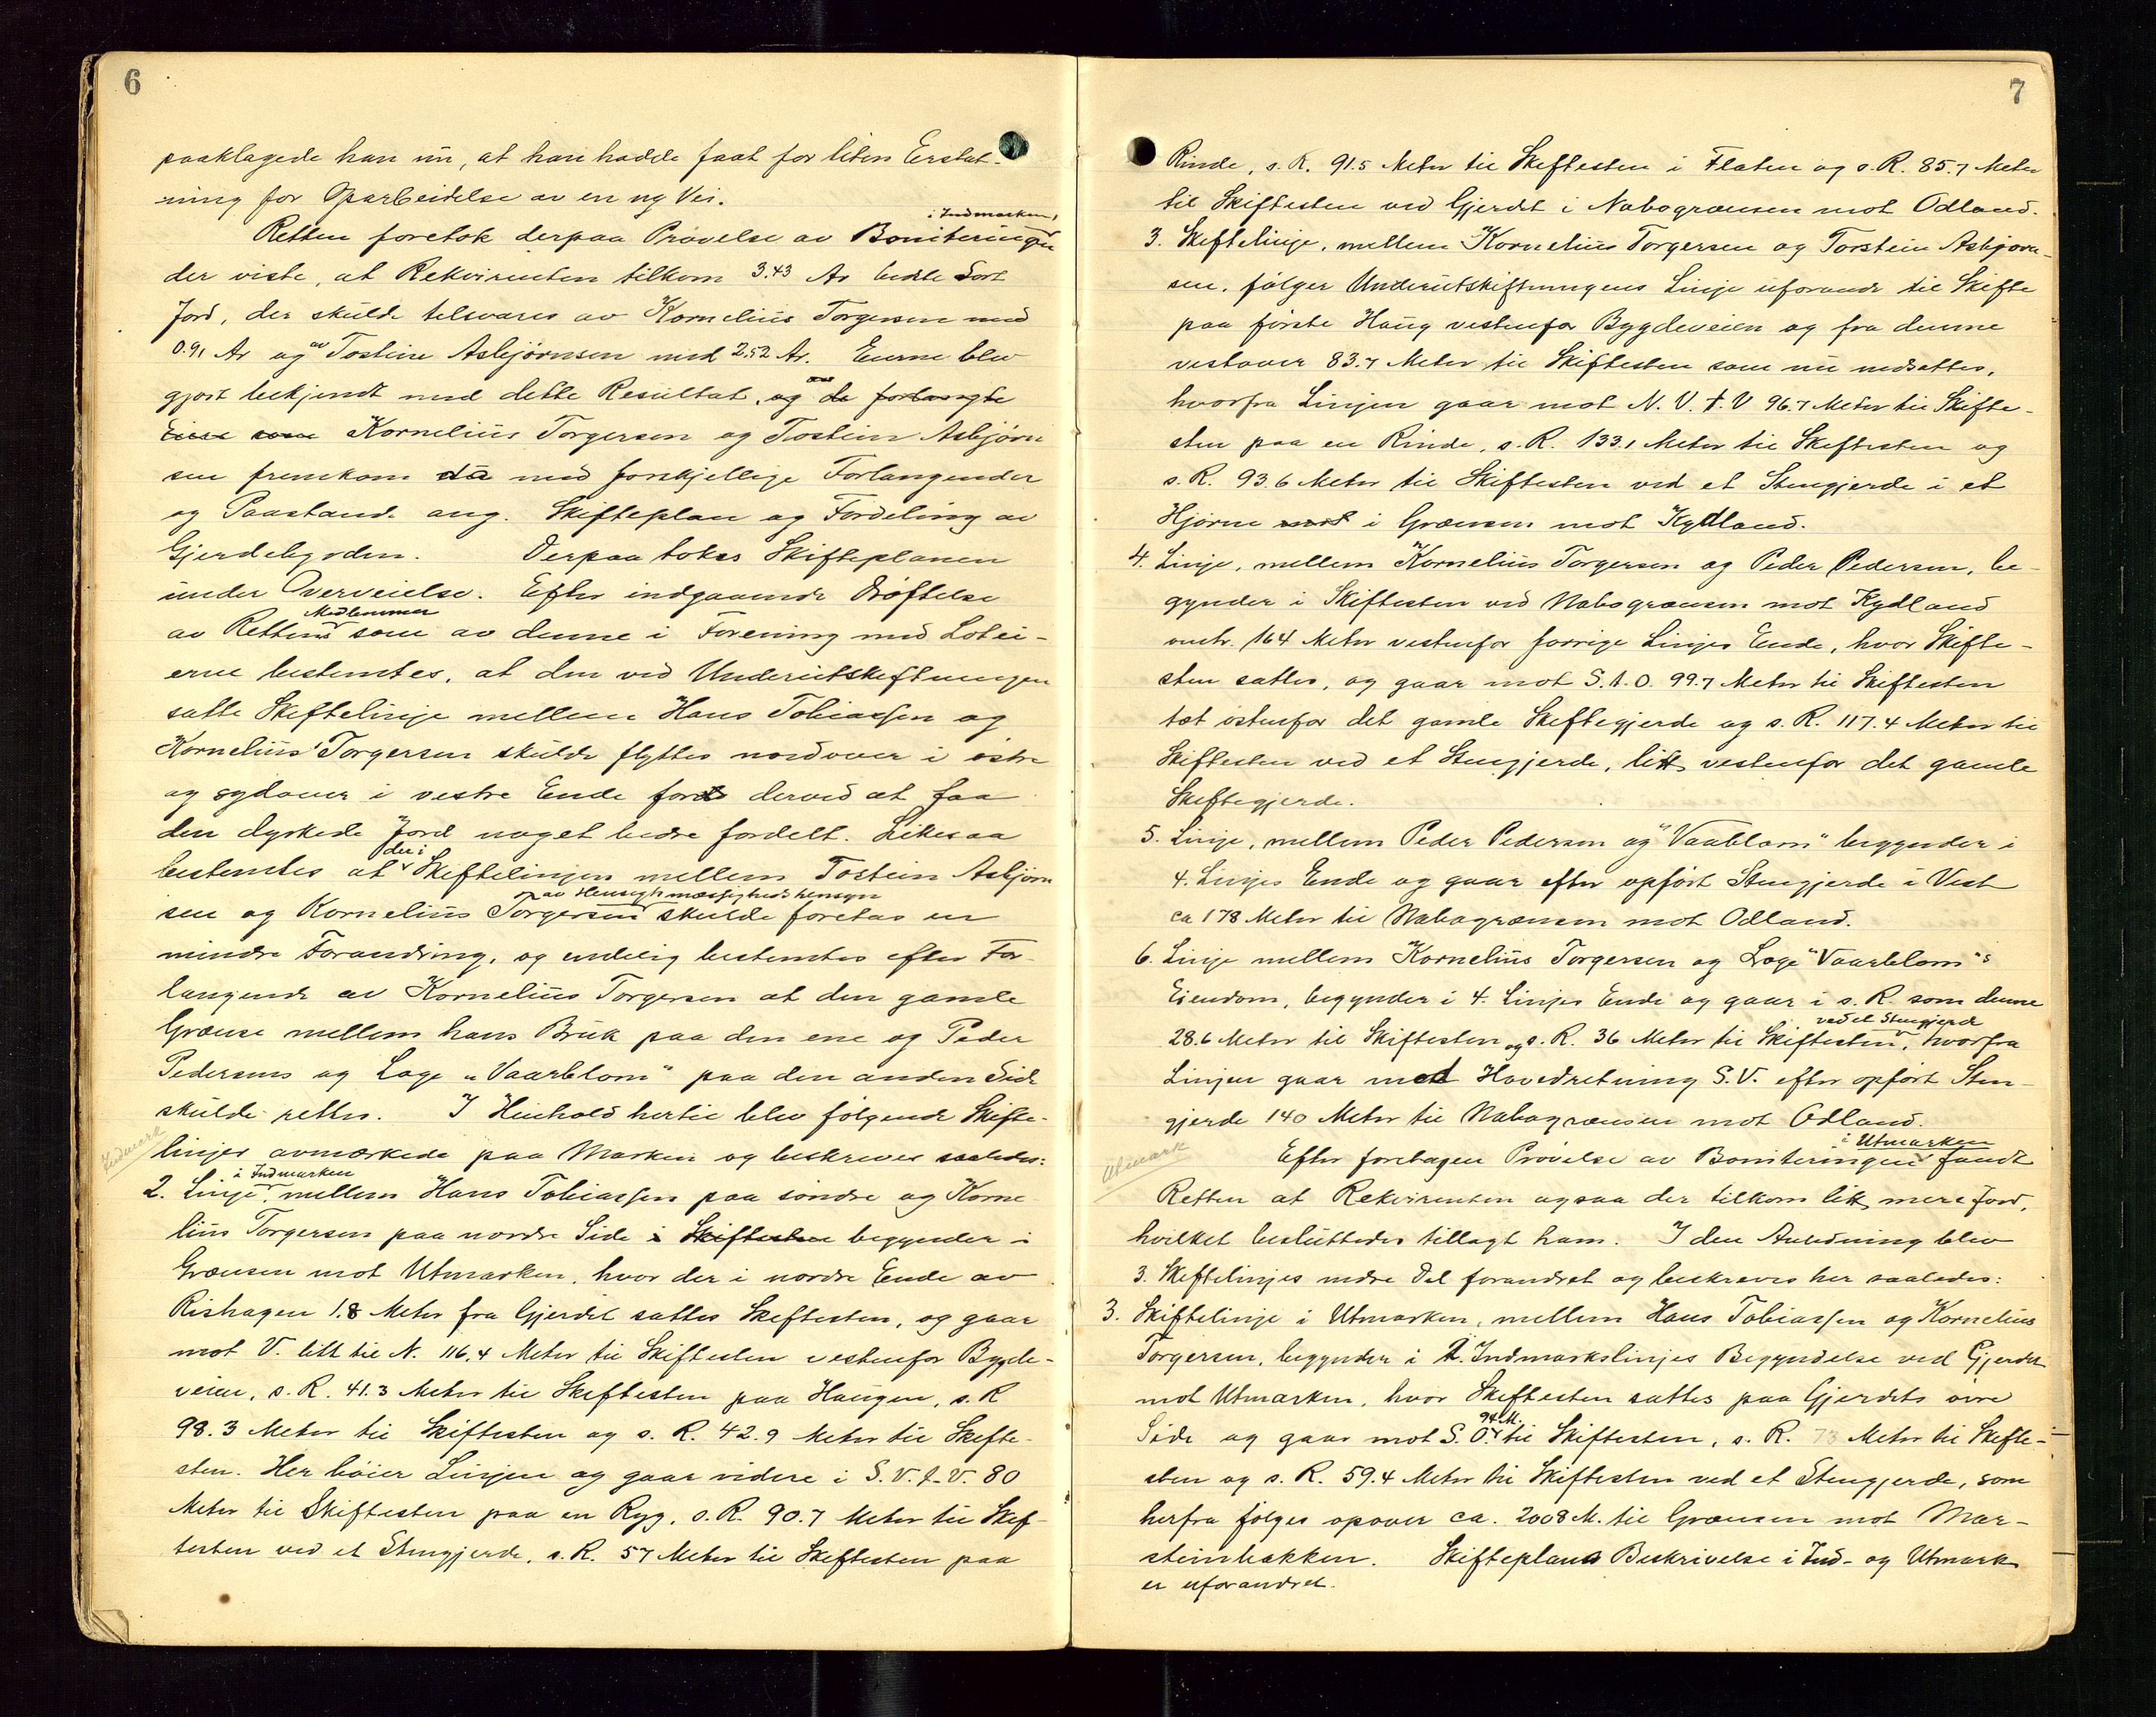 6
paaklagede han nu, at han hadde faat for liten Erstat-
ning for Oparbeidelse av en ny Vei.
i Indmarken,
Retten foretok derpaa Prøvelse av Boniteringen
der viste, at Rekvirenten tilkom 3.43 Ar bedste Sort
Jord, der skulde tilsvares av Kornelius Torgersen med
0.91 Ar og av Tostein Asbjørnsen med 2.52 Ar. Eierne blev
gjort bekjendt med dette Resultat, og de forlangte
som Kornelius Torgersen og Tostein Asbjørn
sen fremkom da med forskjellige Forlangender
og Paastande ang. Skifteplan og Fordeling av
Gjerdebyrden. Derpaa tokes Skifteplanen
under Overveielse. Efter indgaaende Drøftelse
Medlemmer
av Rettens som av denne i Forening med Lotei-
erne bestemtes, at den ved Underutskiftningen
satte Skiftelinje mellem Hans Tobiassen og
Kornelius Torgersen skulde flyttes nordover i østre
og sydover i vestre Ende for derved at faa
den dyrkede Jord noget bedre fordelt. Likesaa
der i
bestemtes at Skiftelinjen mellem Tostein Asbjørn
av Hensigtsmæssighedshensyn
sen og Kornelius Torgersen skulde foretas en
mindre Forandring, og endelig bestemtes efter For-
langende av Kornelius Torgersen at den gamle
Grænse mellem hans Bruk paa den ene og Peder
Pedersens og Loge "Vaarblom" paa den anden Side
skulde rettes. I Henhold hertil blev følgende Skifte-
Indmark
linjer avmerkede paa Marken og beskreves saaledes:
i Indmarken
2. Linje, mellem Hans Tobiassen paa søndre og Korne
lius Torgersen paa nordre Side i Skiftesten begynder i
Grænsen mot Utmarken, hvor der i nordre Ende av
Rishagen 1.8 Meter fra Gjerdet sattes Skiftesten, og gaar
mot V. litt til N. 116,4 Meter til Skiftesten vestenfor Bygde-
veien, s. R. 41.3 Meter til Skiftesten paa Haugen, s. R
98.3 Meter til Skiftesten og s. R. 42.9 Meter til Skifte-
sten. Her bøier Linjen og gaar videre i S.V.t.V. 80
Meter til Skiftesten paa en Ryg, s. R. 90.7 Meter til Skif-
testen ved et Stengjerde, s. R. 57 Meter til Skiftesten paa
7
Rinde, s. R. 91.5 Meter til Skiftesten i Flaten og s. R. 85.7 Meter
til Skiftesten ved Gjerdet i Nabogrænsen mot Odland.
3. Skiftelinje, mellem Kornelius Torgersen og Torstein Asbjørn-
sen, følger Underutskiftningens Linje uforandr til Skifte
paa første Haug vestenfor Bygdeveien og fra denne
vestover 83.7 Meter til Skiftesten som nu nedsattes,
hvorfra Linjen gaar mot N. V. t. V 96.7 Meter til Skifte-
sten paa en Rinde, s. R. 133.1 Meter til Skiftesten og
s. R. 93.6 Meter til Skiftesten ved et Stengjerde i et
Hjørne mot i Grænsen mot Kydland.
4. Linje, mellem Kornelius Torgersen og Peder Pedersen, be-
gynder i Skiftesten ved Nabogrænsen mot Kydland
omtr. 164 Meter vestenfor forrige Linjes Ende, hvor Skifte-
sten sattes, og gaar mot S.t.O. 99.7 Meter til Skiftesten
tæt østenfor det gamle Skiftegjerde og s. R. 117.4 Meter til
Skiftesten ved et Stengjerde, litt vestenfor det gamle
Skiftegjerde.
5. Linje, mellem Peder Pedersen og "Vaablom" begynder i
4. Linjes Ende og gaar efter opført Stengjerde i Vest
ca 178 Meter til Nabogrænsen mot Odland.
6. Linje mellem Kornelius Torgersen og Loge "Vaarblom"s
Eiendom, begynder i 4. Linjes Ende og gaar i s. R. som denne
ved et Stengjerde
28.6 Meter til Skiftesten og s. R. 36 Meter til Skiftesten, hvorfra
Linjen gaar med Hovedretning S.V. efter opført Sten-
gjerde 140 Meter til Nabogrænsen mot Odland.
Utmark
i Utmarken
Efter foretagen Prøvelse av Boniteringen fandt
Retten at Rekvirenten ogsaa der tilkom litt mere Jord,
hvilket besluttedes tillagt ham. I den Anledning blev
3. Skiftelinjes nedre Del forandret og beskreves her saaledes:
3. Skiftelinje i Utmarken, mellem Hans Tobiassen og Kornelius
Torgersen, begynder i 2. Indmarkslinjes Begyndelse ved Gjerdet
mot Utmarken, hvor Skiftesten sattes paa Gjerdets øvre
94 M.
Side og gaar mot S.O. til Skiftesten, s. R. 73 Meter til Skifte-
sten og s. R. 59.4 Meter til Skiftesten ved et Stengjerde, som
herfra følges opover ca. 2008 M. til Grænsen mot Mar-
steinbakken. Skifteplans Beskrivelse i Ind- og Utmark
er uforandret.